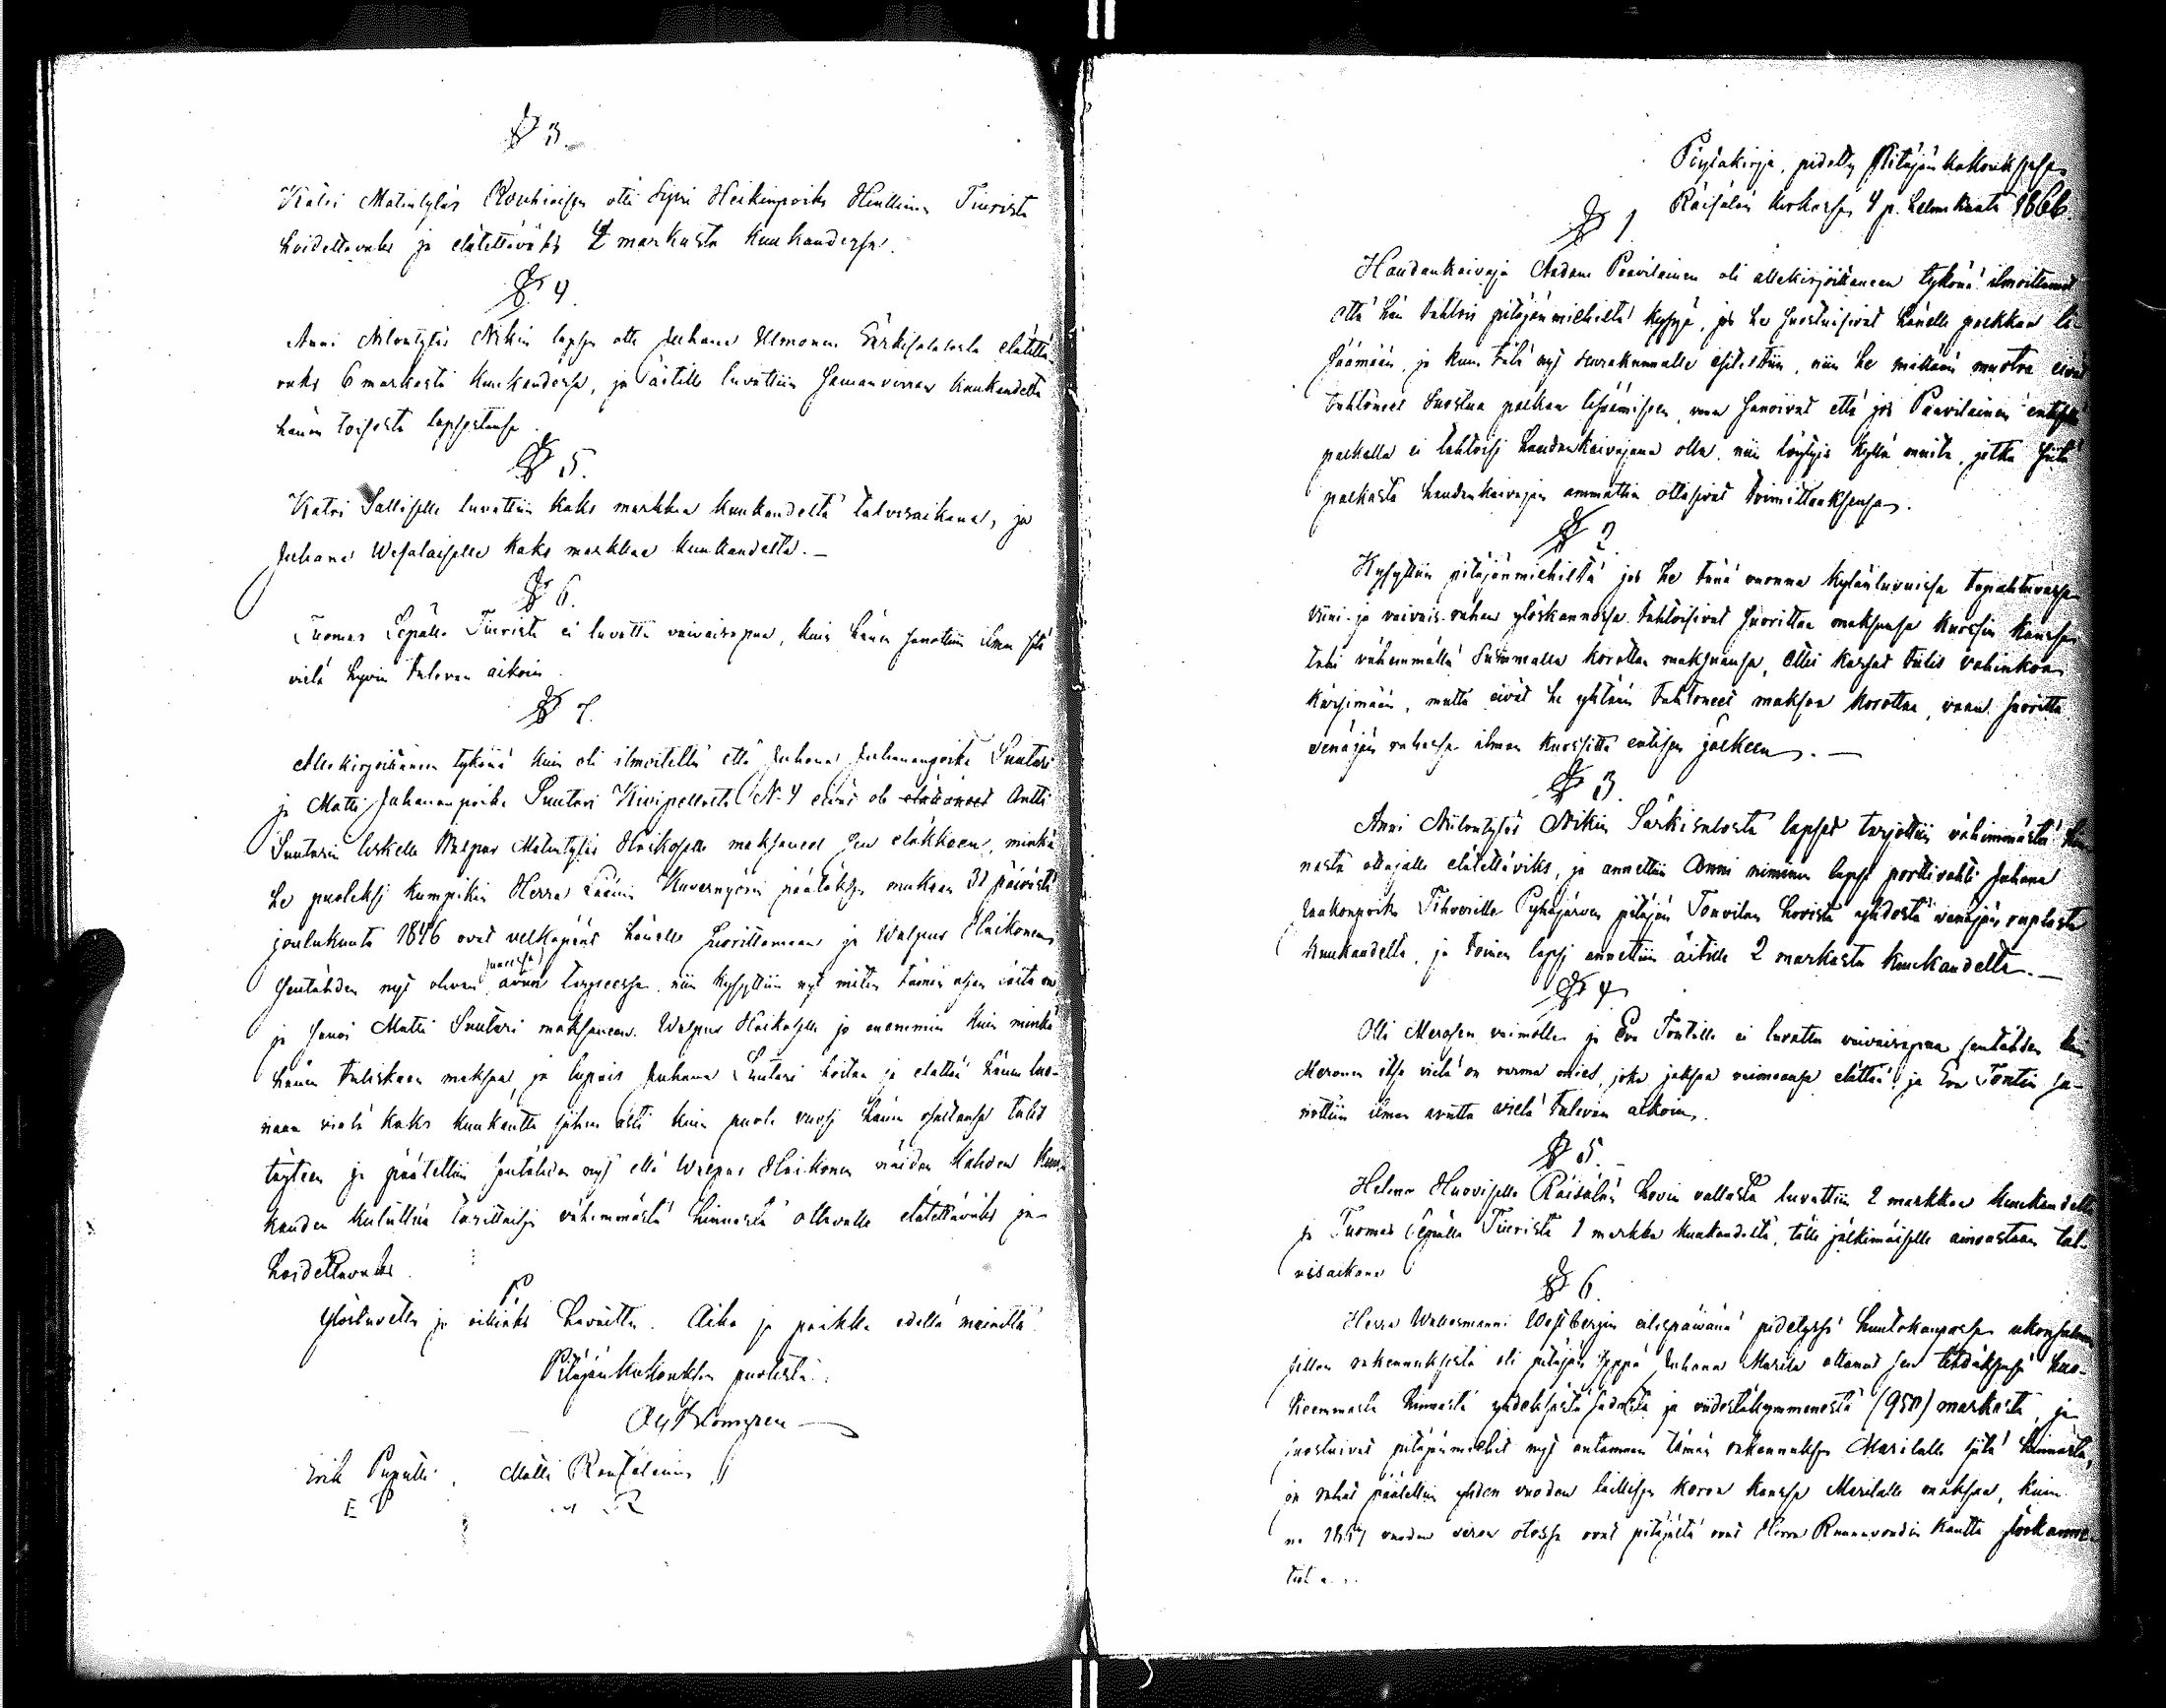 § 3.
Katri Matintytär Rouhiaisen otti Sipri Heikinpoika Hinttinen Tiurista
hoidettavaks ja elätettäväks 4 markasta kuukaudessa.
§ 4.
Anni Nilontytär Nikin lapsen otti Juhana Ulmonen Särkisalosta elätettä-
väks 6 markasta kuukaudessa, ja äitille luvattiin saman verran kuukaudelta
hänen toisesta lapsestansa.
§ 5.
Katri Salliselle luvattiin kaks markkaa kuukaudelta talvisaikana, ja
Juhana Wesalaiselle kaks markkaa kuukaudelta.—
§ 6.
Tuomas Sepälle Tiurista ei luvattu vaivaisapua, kuin hänen sanottiin ilman sitä
vielä hyvin tulevan aikoin.
§ 7.
Allekirjoittaneen tykönä kuin oli ilmoitettu että Juhana Juhananpoika Suutari
ja Matti Juhananpoika Suutari Kivipellosta N. 4 eivät ole elättäneet Antti
Suutarin leskelle Walpur Matintytär Haikoselle maksaneet sen eläkkeen, minkä
he puoleksi kumpikin Herra Läänin Kuvernyörin päätöksen mukaan 31 päivästä
joulukuuta 1846 ovat velkapäät hänelle suorittamaan ja Walpur Haikonen
sentähden nyt olevan suuressa avun tarpeessa, niin kysyttiin nyt miten tämän asian laita on,
ja sanoi Matti Suutari maksaneen Walpur Haikoselle jo enemmin kuin minkä
hänen tuliskaan maksaa, ja lupais Juhana Suutari hoitaa ja elättää hänen luo-
naan vielä kaks kuukautta siihen asti kuin puoli vuosi hänen osaltansa tulis
täyteen ja päätettiin sentähden nyt että Walpur Haikonen näiden kahden kuu-
kauden kuluttua tarittaisi vähimmästä hinnasta ottavalle elätettäväks ja
hoidettavaks.
Ylösluettu ja oikiaks havaittu. Aika ja paikka edellä mainittu.
Pitäjänkokouksen puolesta:
Erik Puputti, Matti Rautalainen
E P M R
Pöytäkirja, pidetty Pitäjänkokouksessa
Räisälän kirkossa 4 p. helmikuuta 1866.
§ 1
Haudankaivaja Aadam Paavilainen oli allekirjoittaneen tykönä ilmoittanut
että hän tahtois pitäjänmiehiltä kysyä, jos he suostuisivat hänelle palkkaa li-
säämään, ja kuin tätä nyt seurakunnalle esitettiin, niin he millään muotoa eivät
tahtoneet suostua palkan lisäämiseen, vaan sanoivat että jos Paavilainen entisellä
palkalla ei tahtoisi haudankaivajana olla, niin löytyis kyllä muita, jotka siitä
palkasta haudankaivajan ammattia ottasivat toimittaaksensa.
§ 2.
Kysyttiin pitäjänmiehiltä jos he tänä vuonna kylänluvuissa tapahtuvassa
viini- ja vaivais-rahan ylöskannossa tahtoisivat suorittaa maksunsa kurssin kanssa
tahi vähemmällä summalla korottaa maksuansa, ettei kassat tulis vahinkoa
kärsimään, mutta eivät he yhtään tahtoneet maksua korottaa, vaan suorittaa
venäjän rahassa ilman kurssitta entisen jälkeen.—
§ 3.
Anni Nilontytär Nikin Särkisalosta lapset tarjottiin vähimmästä hin-
nasta ottajalle elätettäviks, ja annettiin Anni niminen lapsi porttivahti Juhana
Jaakonpoika Tihverille Pyhäjärven pitäjän Tonvilan hovista yhdestä venäjän ruplasta
kuukaudelta, ja toinen lapsi annettiin äitille 2 markasta kuukaudelta.—
§ 4
Olli Merosen vaimolle ja Eva Tontille ei luvattu vaivaisapua sentähden kuin
Meronen itse vielä on varma mies, joka jaksaa vaimoansa elättää, ja Eva Tontin sa-
nottiin ilman avutta vielä tulevan aikoin.
§ 5.
Helena Huoviselle Räisälän hovin vallasta luvattiin 2 markkaa kuukaudelta
ja Tuomas Sepälle Tiurista 1 markka kuukaudelta, tälle jälkimäiselle ainoastaan tal-
visaikana
§ 6.
Herra Wallesmanni Westbergin eilispäivänä pidetyssä huutokaupassa
sillan rakennuksesta oli pitäjän seppä Juhana Marila ottanut sen tehdäksensä huo-
kiemmasta hinnasta yhdeksästä sadasta ja viidestäkymmenestä (950) markasta, ja
suostuivat pitäjänmiehet nyt antamaan tämän rakennuksen Marilalle siitä hinnasta,
ja rahat päätettiin yhden vuoden laillisen koron kanssa Marilalle maksaa, kuin
vuoden veron otossa ovat pitäjältä ovat Herra Ruununvoudin kautta ylöskanne-
tut